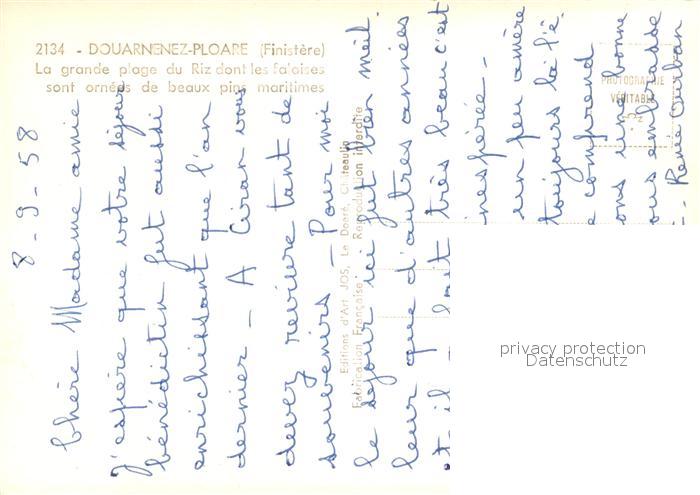 2134 - DOUARNENEZ-PLOARE (Finistère)
La grande plage du Riz dont les falaises
sont ornées de beaux pins maritimes
PHOTOGRAPHIE
VÉRITABLE
Editions d'Art JOS, Le Doaré, Châteaulin
Fabrication Française - Reproduction interdite
8-9-58
Chère Madame amie
J'espère que votre séjour
bénédictin fut aussi
enrichissant que l'an
dernier - A Ciran vous
devez revivre tant de
souvenirs - Pour moi
le séjour ici fut bien meil
leur que d'autres années
et il fait très beau c'est
inespérée -
un peu amère
toujours là l'é
e comprend
ons une bonne
ous embrasse
Renée
privacy protection
Datenschutz